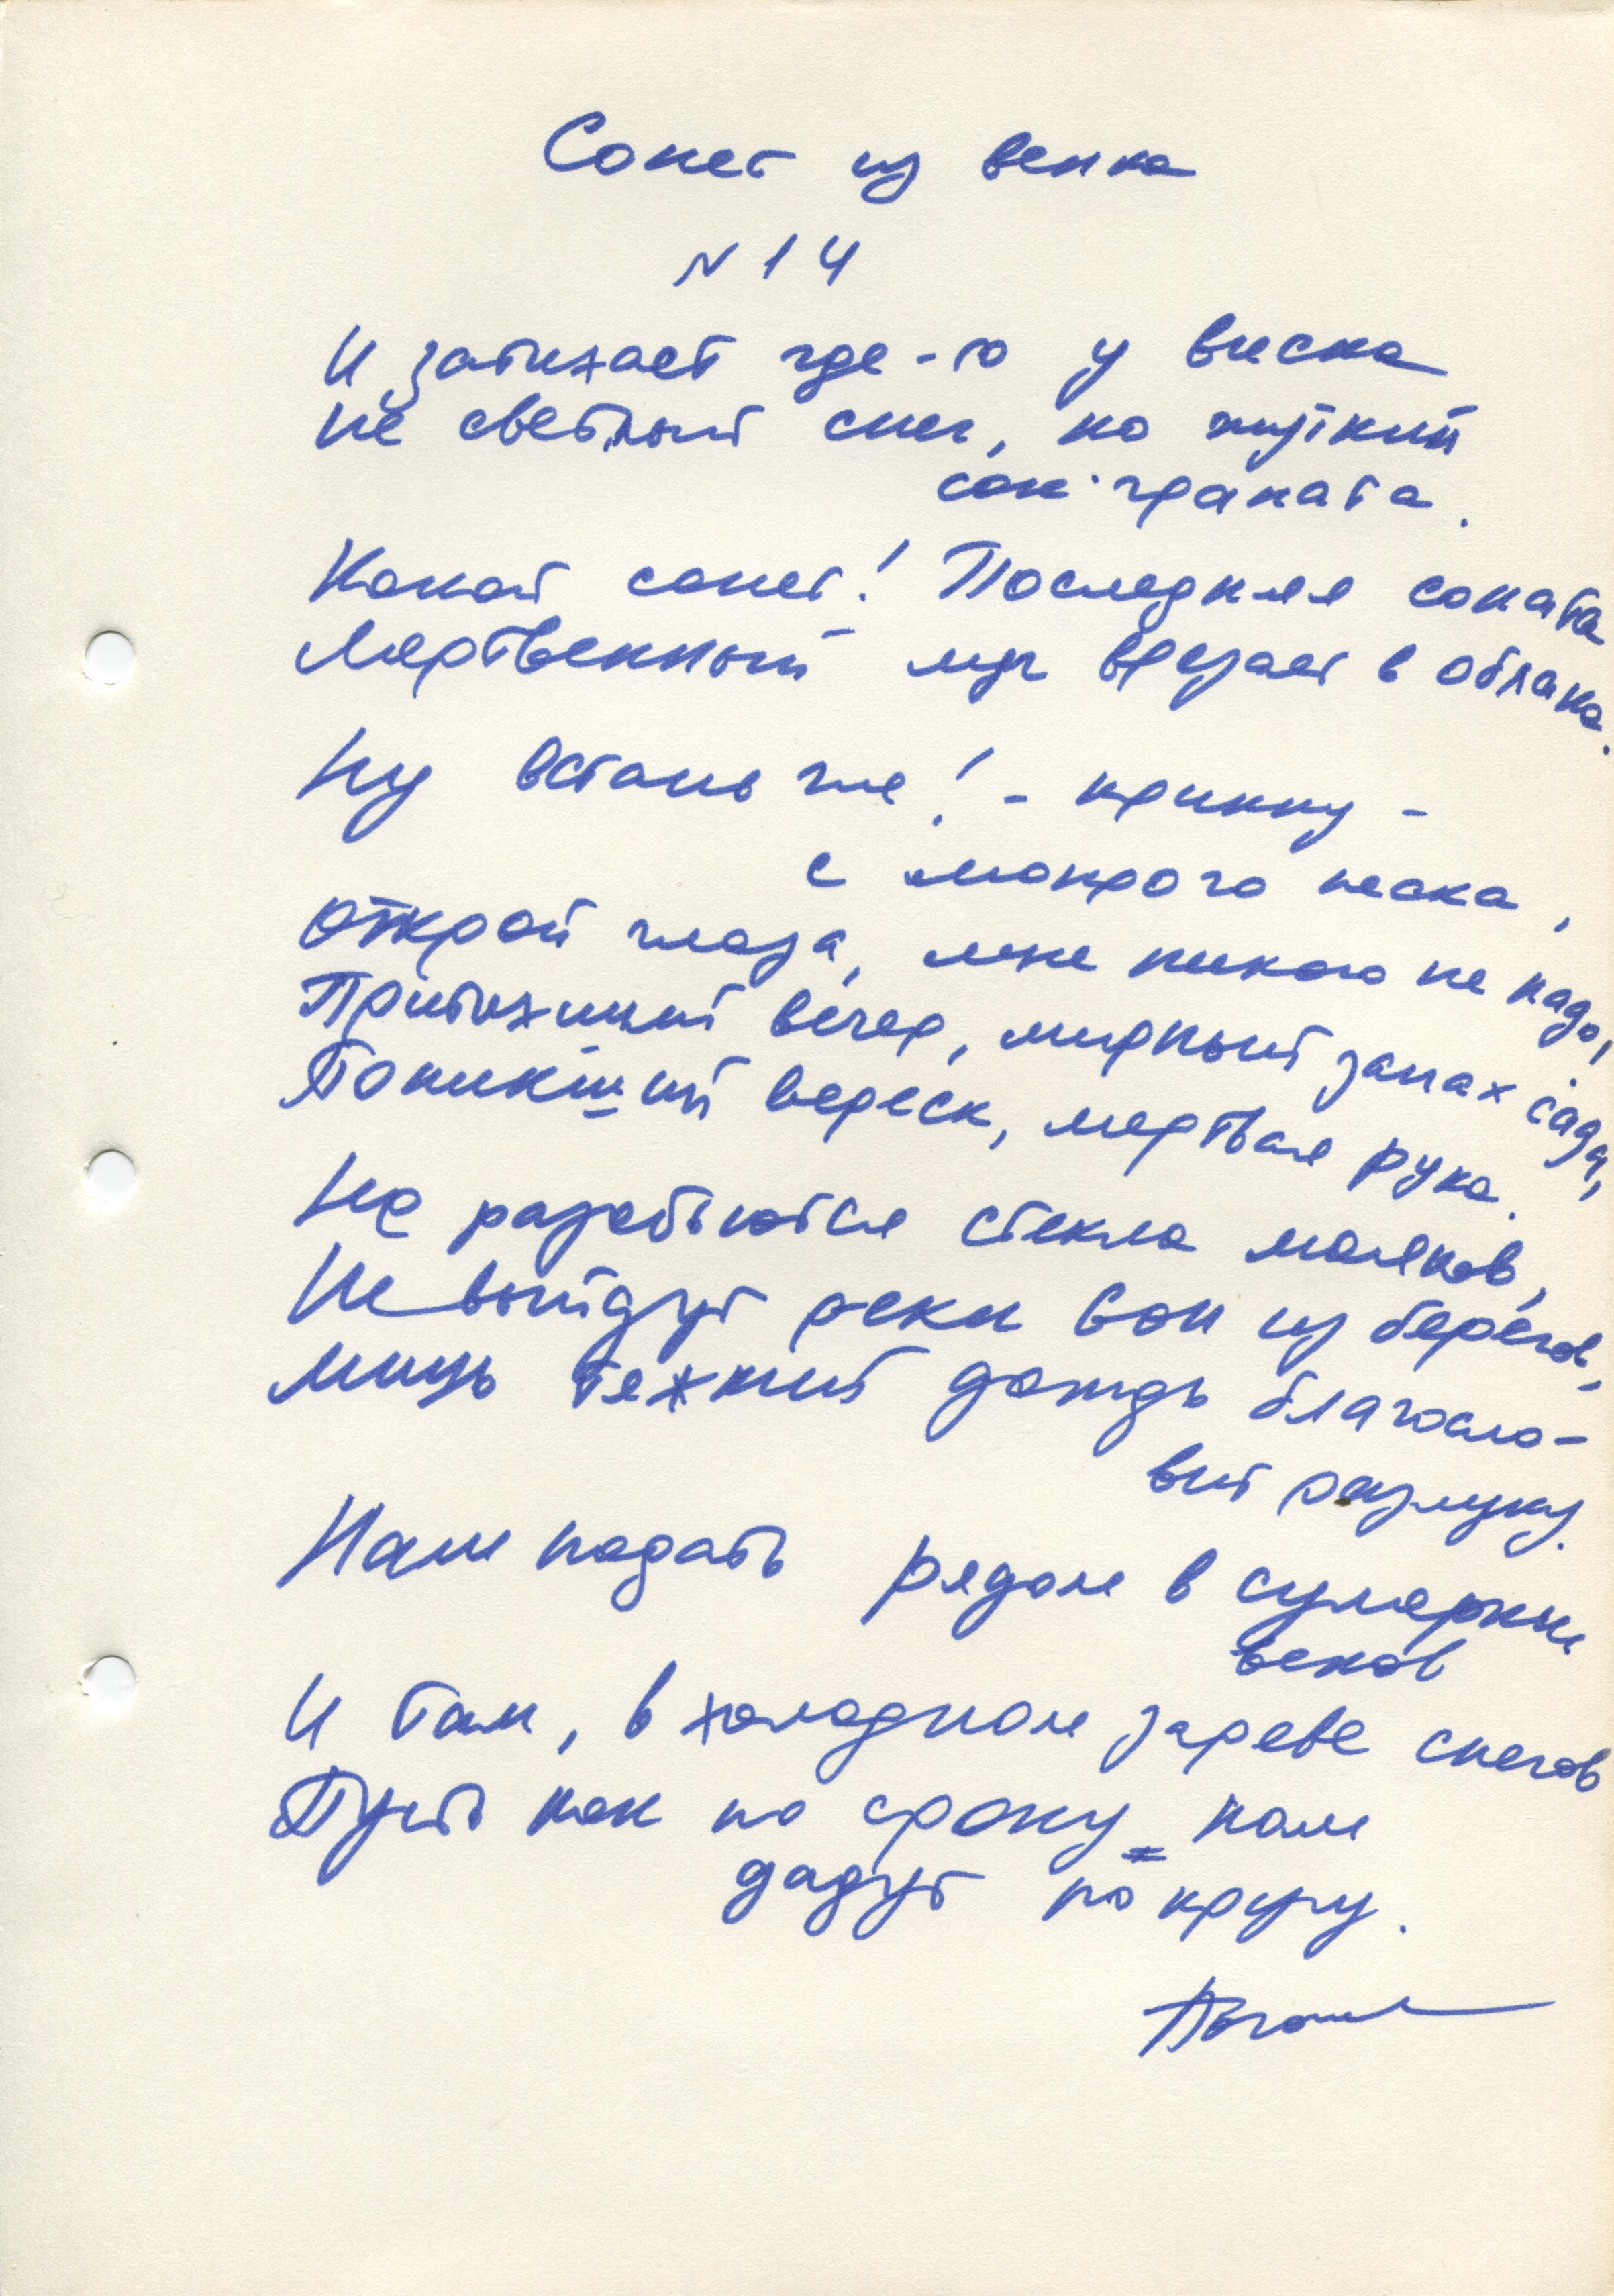 Сонет из венка
N 14
И затихает где-то у виска
не светлый снег, но жуткий
сок граната.
Какой сонет! Последняя соната
Мертвенный луч врезает в облака.
Ну встань же! - крикну -
с мокрого песка,
открой глаза, мне никого не надо,
Притихший вечер, мирный запах сада,
Поникший вереск, мертвая рука.
Не разобьются стекла маяков,
Не выйдут реки вон из берегов,
лишь тяжкий дождь благосло-
вит разлуку.
Нам падать рядом в сумерки
веков
И там, в холодном зареве снегов
Пусть как по сроку нам
дадут по кругу.